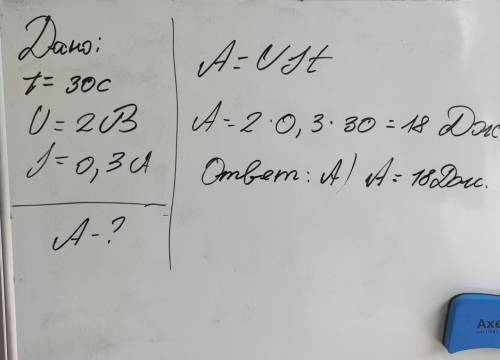 Дано:
t = 30c
U = 2 В
J = 0,3 А
A - ?
A = UJt
A = 2 · 0,3 · 30 = 18 Дж
Ответ: A) A = 18 Дж.
Axe